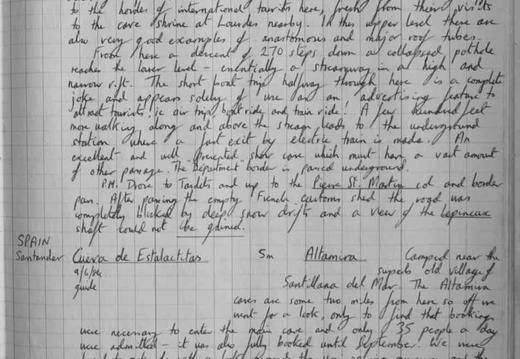 to the hordes of international tourists here, fresh from their visits
to the cave shrine at Lourdes nearby. In this upper level there are
also very good examples of anastomous and major roof tubes.
From here a descent of 270 steps down a collapsed pothole
reaches the lower level - essentially a streamway in a high and
narrow rift. The short boat trip halfway through here is a complete
joke and appears solely of use as an advertising feature to
attract tourists! ie air trip, boat ride and train ride! A few hundred feet
more walking along and above the stream leads to the underground
station where a fast exit by electric train is made. An
excellent and well presented show cave which must have a vast amount
of other passage. The Department border is passed underground.
P.M. Drove to Tardets and up to the Pierre St. Martin col and border
pass. After passing the empty French customs shed the road was
completely blocked by deep snow drifts and a view of the Lepineux
shaft could not be gained.
SPAIN
Santander Cueva de Estalactitas 5m Altamira Camped near the
superb old village of
guide Santillana del Mar. The Altamira
caves are some two miles from here so off we
went for a look, only to find that booking
were necessary to enter the main cave and only 35 people a day
were admitted - it was also fully booked until September. We were